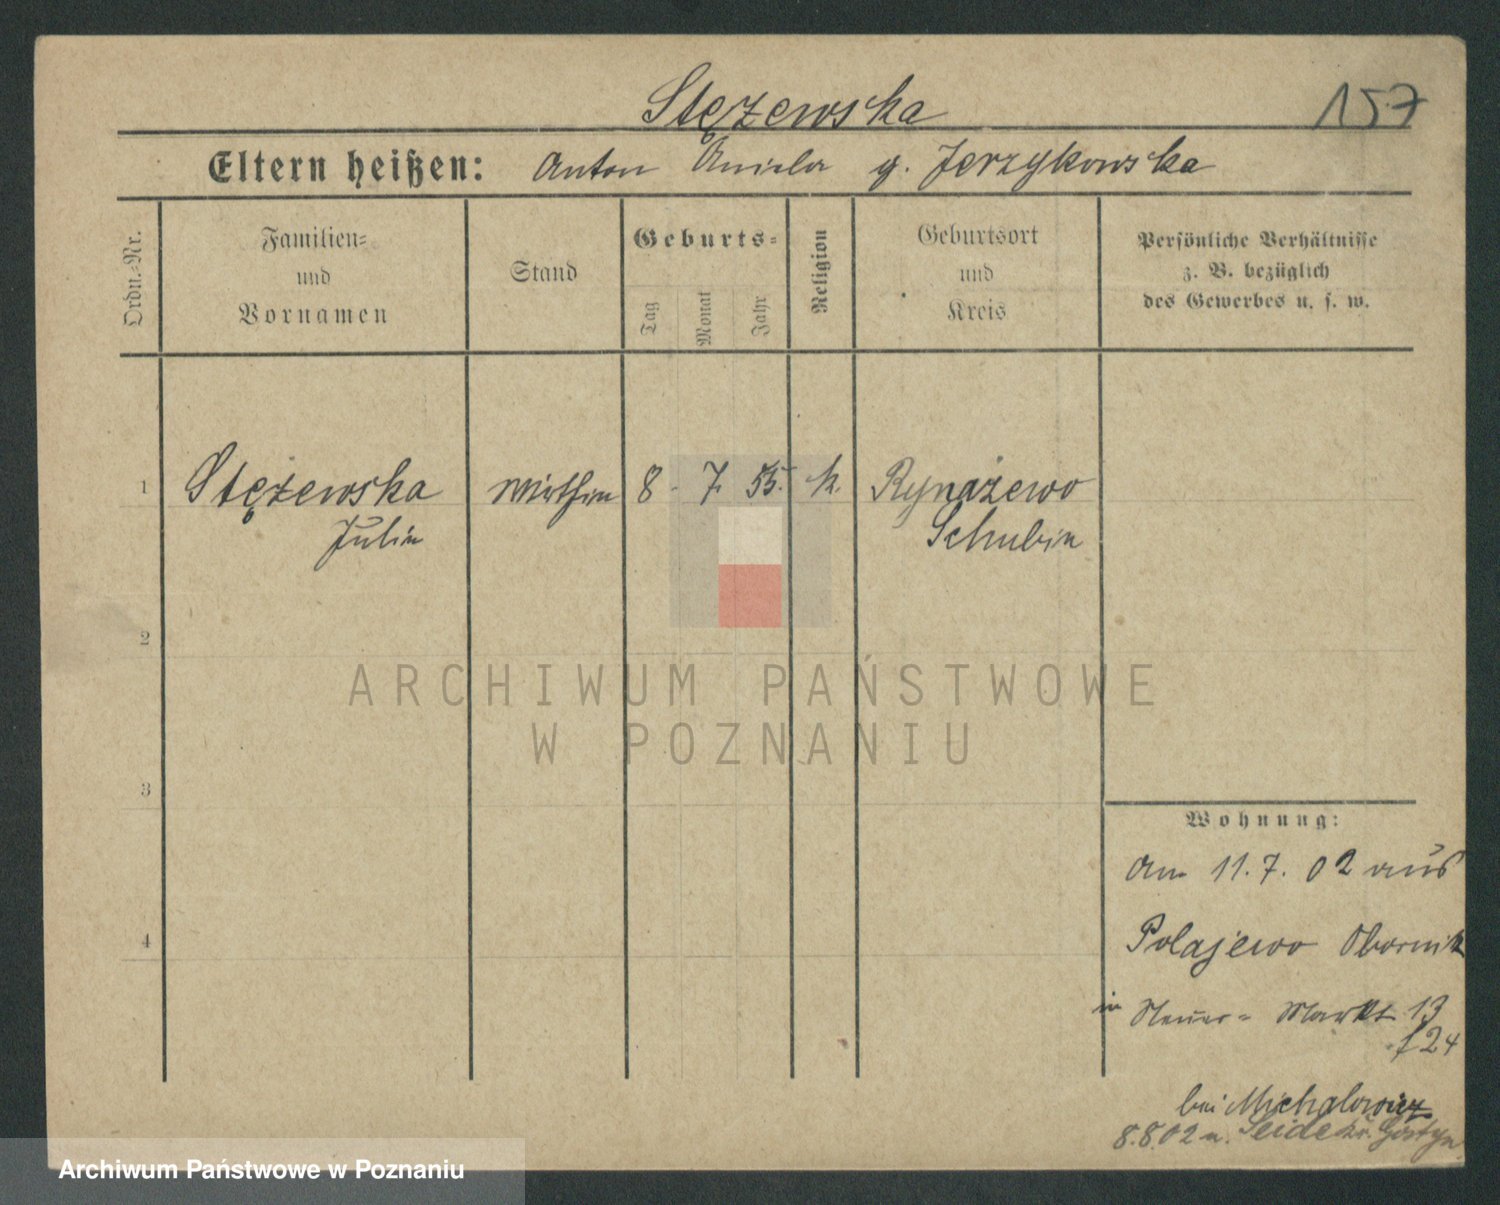 Stężewska
157
Eltern heißen: Anton Aniela g. Jerzykowska
Ordn.=Nr.
Familien=
und
Vornamen
Stand
Geburts=
Tag
Monat
Jahr
Religion
Geburtsort
und
Kreis
Persönliche Verhältnisse
z. B. bezüglich
des Gewerbes u. s. w.
1 Stężewska Wirthin 8. 7. 55. k. Rynażewo
Julia Schubin
2
3
4
Wohnung:
Am 11. 7. 02 aus
Polajewo Obornik
in Neuer= Markt 13
f 24
bei Michalowicz
8.8.02 n. Kr. Gostyn
ARCHIWUM PAŃSTWOWE
W POZNANIU
Archiwum Państwowe w Poznaniu